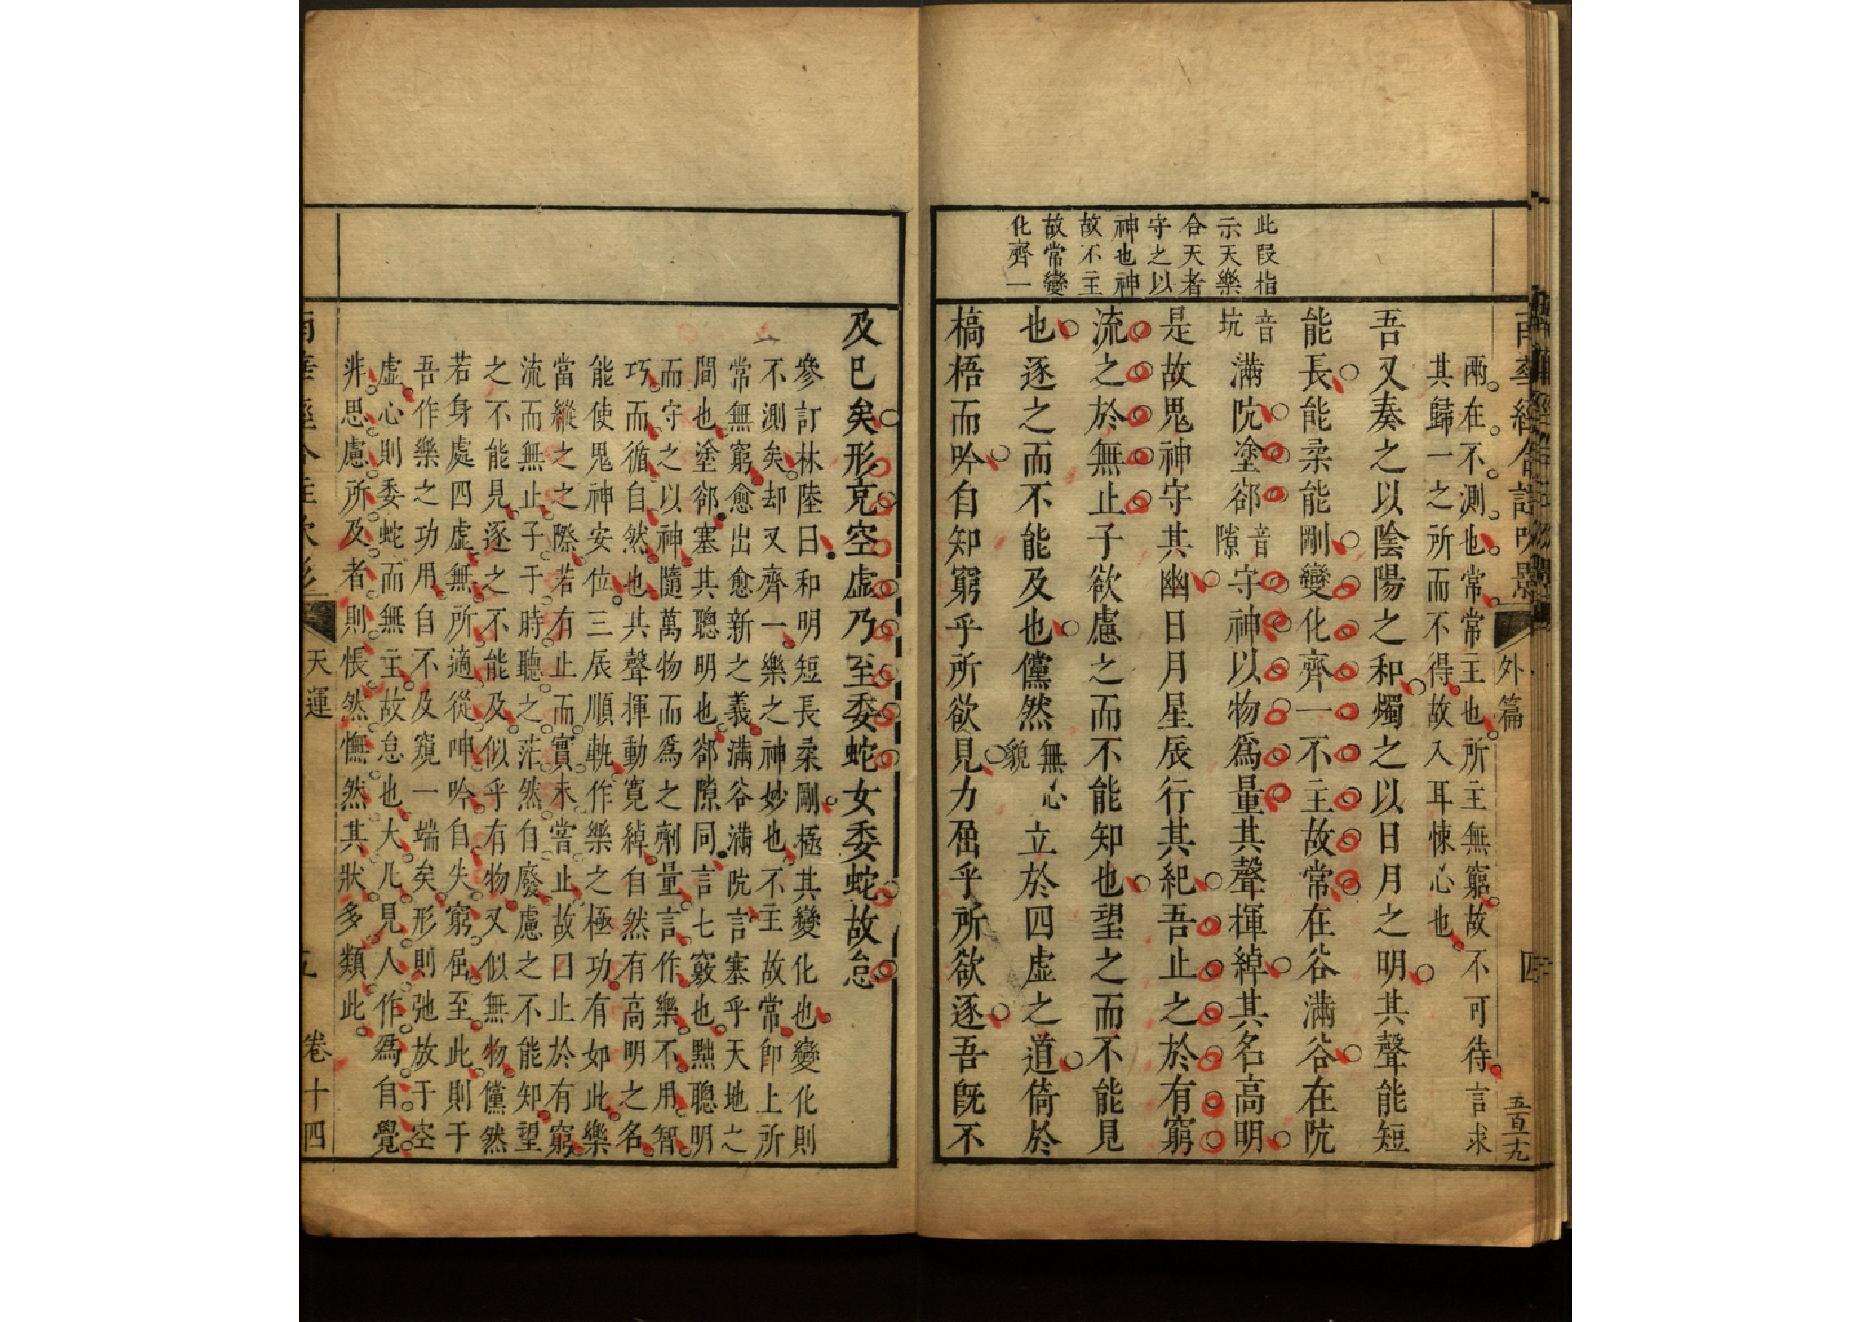 此段指
示天樂
合天者
守之以
神也神
故不主
故常變
化齊一
外篇
四
五百十九
兩在不測也常常王也所主無窮故不可待言求
其歸一之所而不得故入耳悚心也
吾又奏之以陰陽之和燭之以日月之明其聲能短
能長能柔能剛變化齊一不主故常在谷滿谷在阬
音坑滿阬塗郤音隙守神以物爲量其聲揮綽其名高明
是故鬼神守其幽日月星辰行其紀吾止之於有窮
流之於無止子欲慮之而不能知也望之而不能見
也逐之而不能及也儻然無心貌立於四虛之道倚於
槁梧而吟自知窮乎所欲見力屈乎所欲逐吾旣不
及已矣形充空虛乃至委蛇女委蛇故怠
參訂林陸曰和明短長柔剛極其變化也變化則
不測矣却又齊一樂之神妙也不主故常卽上所
常無窮愈出愈新之義滿谷滿阬言塞乎天地之
間也塗郤塞其聰明也郤隙同言七竅也黜聰明
而守之以神隨萬物而爲之劑量言作樂不用智
巧而循自然也其聲揮動寬綽自然有高明之名
能使鬼神安位三辰順軌作樂之極功有如此樂
當縱之之際若有止而實未嘗止故曰止於有窮
流而無止子于時聽之茫然自廢慮之不能知望
之不能見逐之不能及似乎有物又似無物儻然
若身處四虛無所適從呻吟自失窮屈至此則于
吾作樂之功用自不及窺一端矣形則弛放于空
虛心則委蛇而無主故怠也大凡見人作爲自覺
非思慮所及者則悵然憮然其狀多類此
天運
卷十四